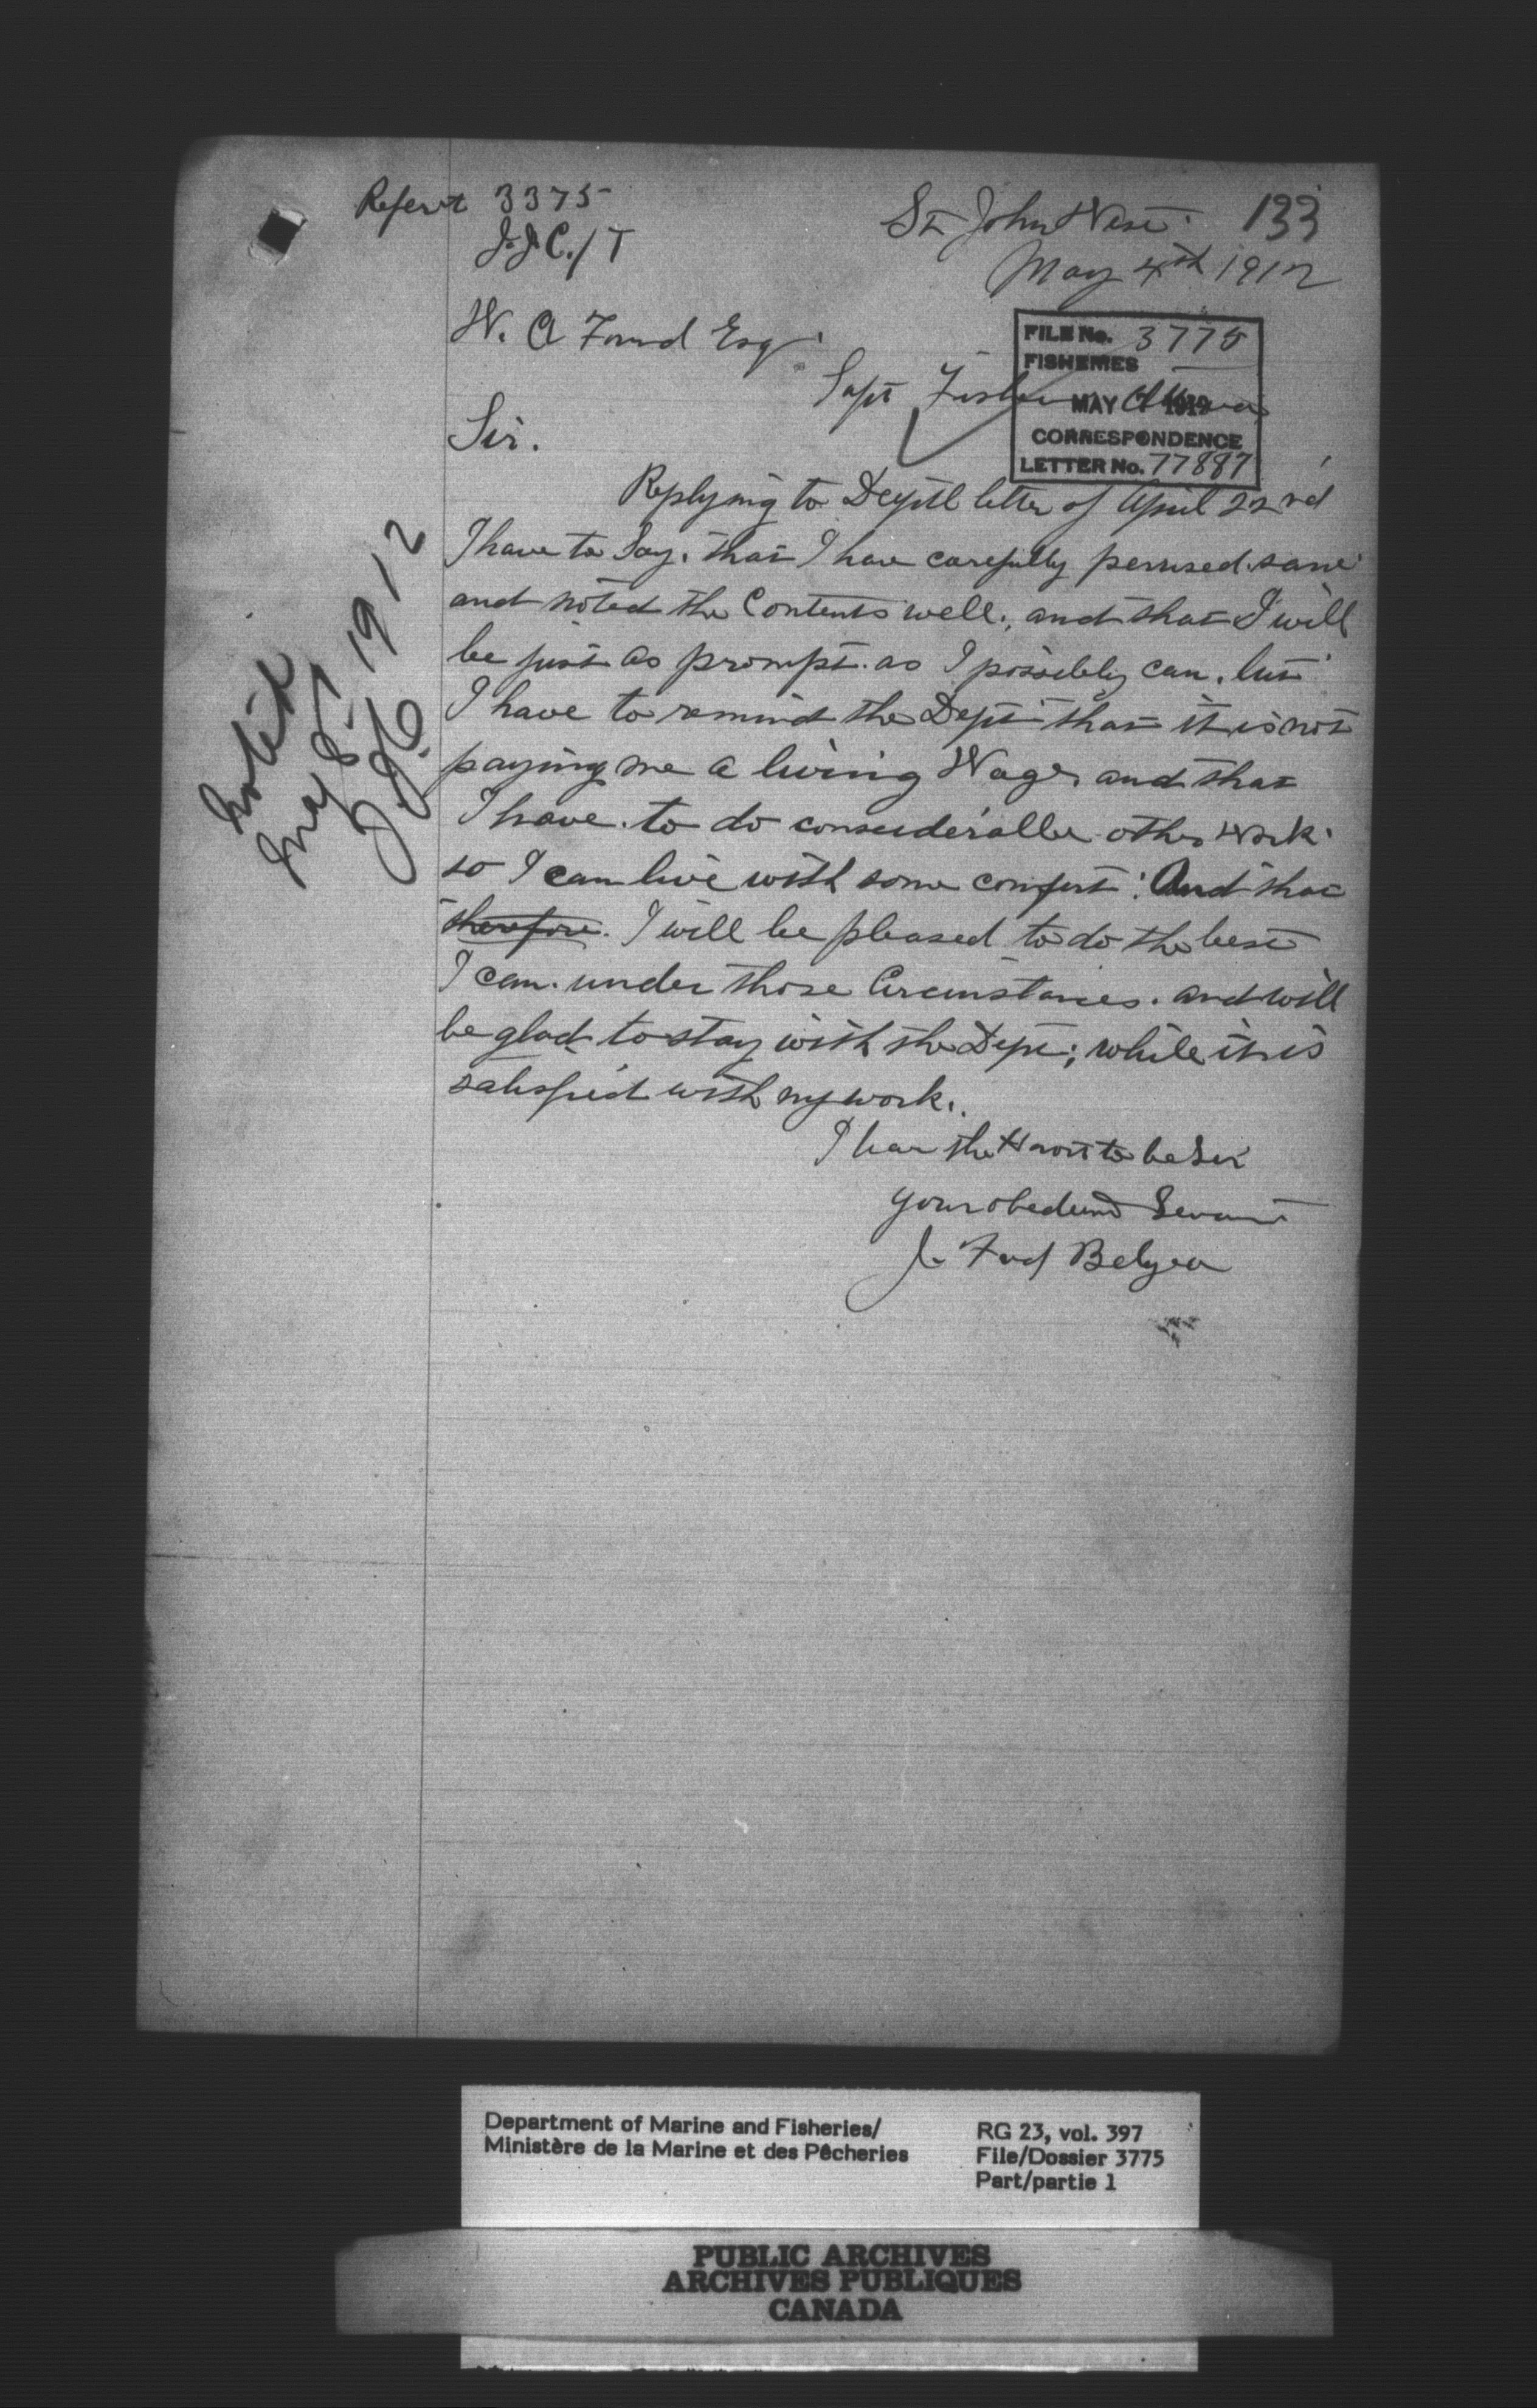 Refer't 3375
J.J.C./T
St John West. 133
May 4th 1912
W. A Found Esq
FILE No. 3775
FISHERIES
Supt Fisheries Ottawa
MAY 1912
CORRESPONDENCE
LETTER No. 77887
Sir.
Replying to Deptl letter of April 22nd
I have to Say. that I have carefully perused. same
and noted the Contents well., and that I will
be just as prompt. as I possibly can. but
I have to remind the Dept that it is not
paying me a living Wage and that
I have. to do considerable other work.
so I can live with some comfort: And that
therefore. I will be pleased to do the best
I can. under those Circumstances. and will
be glad to stay with the Dept; while it is
satisfied with my work.
I have the Honor to be Sir
your obedient Servant
J. Fred Belyea
noted
May 8-1912
J.J.C
Department of Marine and Fisheries/
Ministère de la Marine et des Pêcheries
RG 23, vol. 397
File/Dossier 3775
Part/partie 1
PUBLIC ARCHIVES
ARCHIVES PUBLIQUES
CANADA